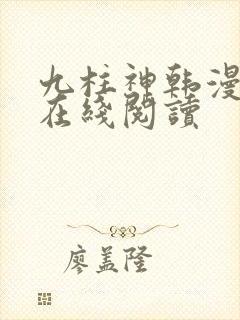 九柱神韩漫
在綫閱讀
廖盖隆